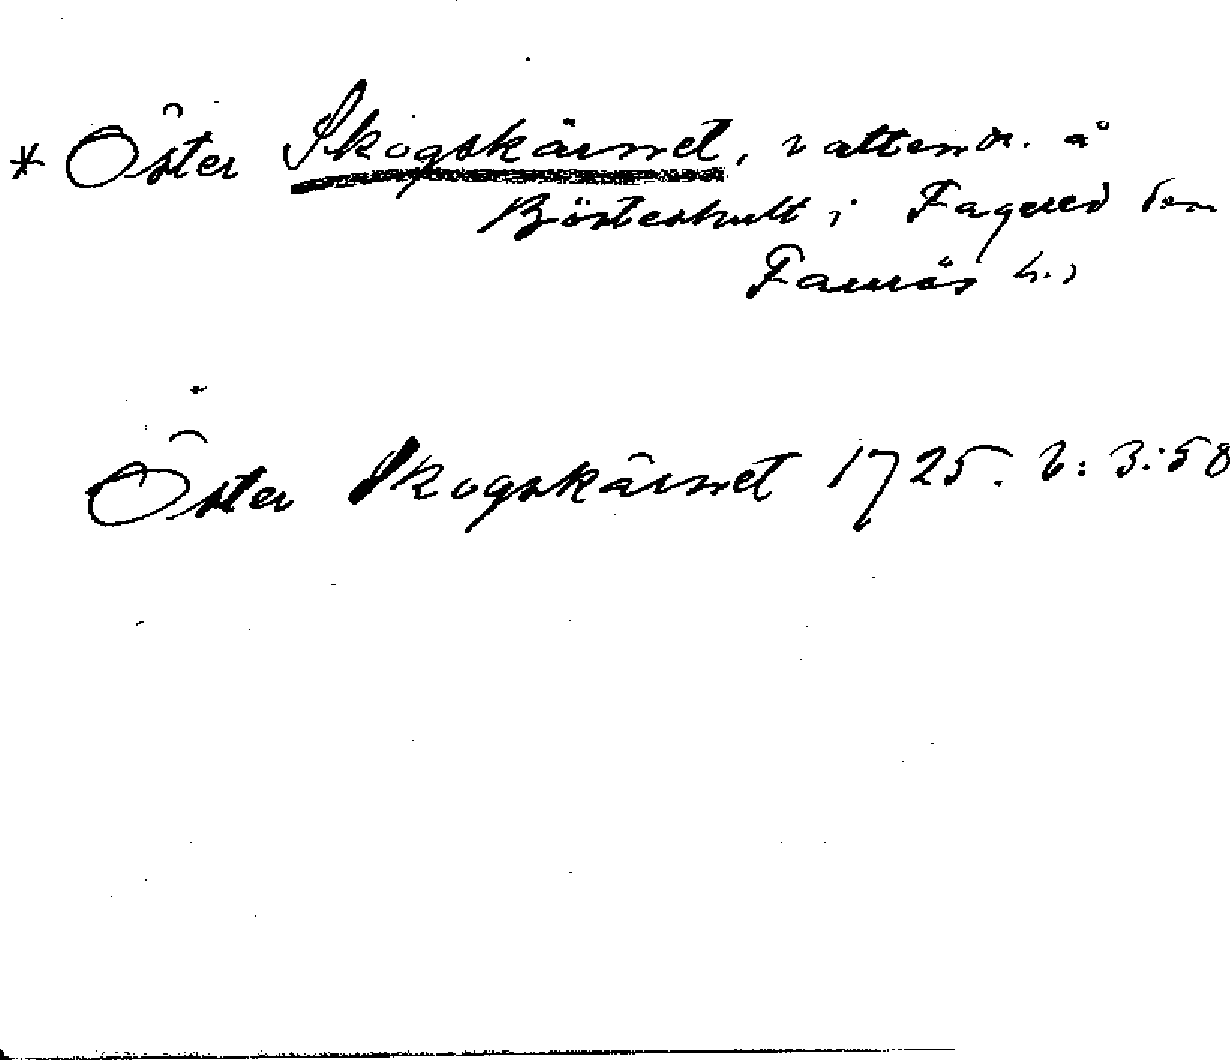 * Öster Skogskärnet, vattendr. å
Bösteshult i Fagered sn
Faurås h.,
Öster Skogskärnet 1725. b: 3:58